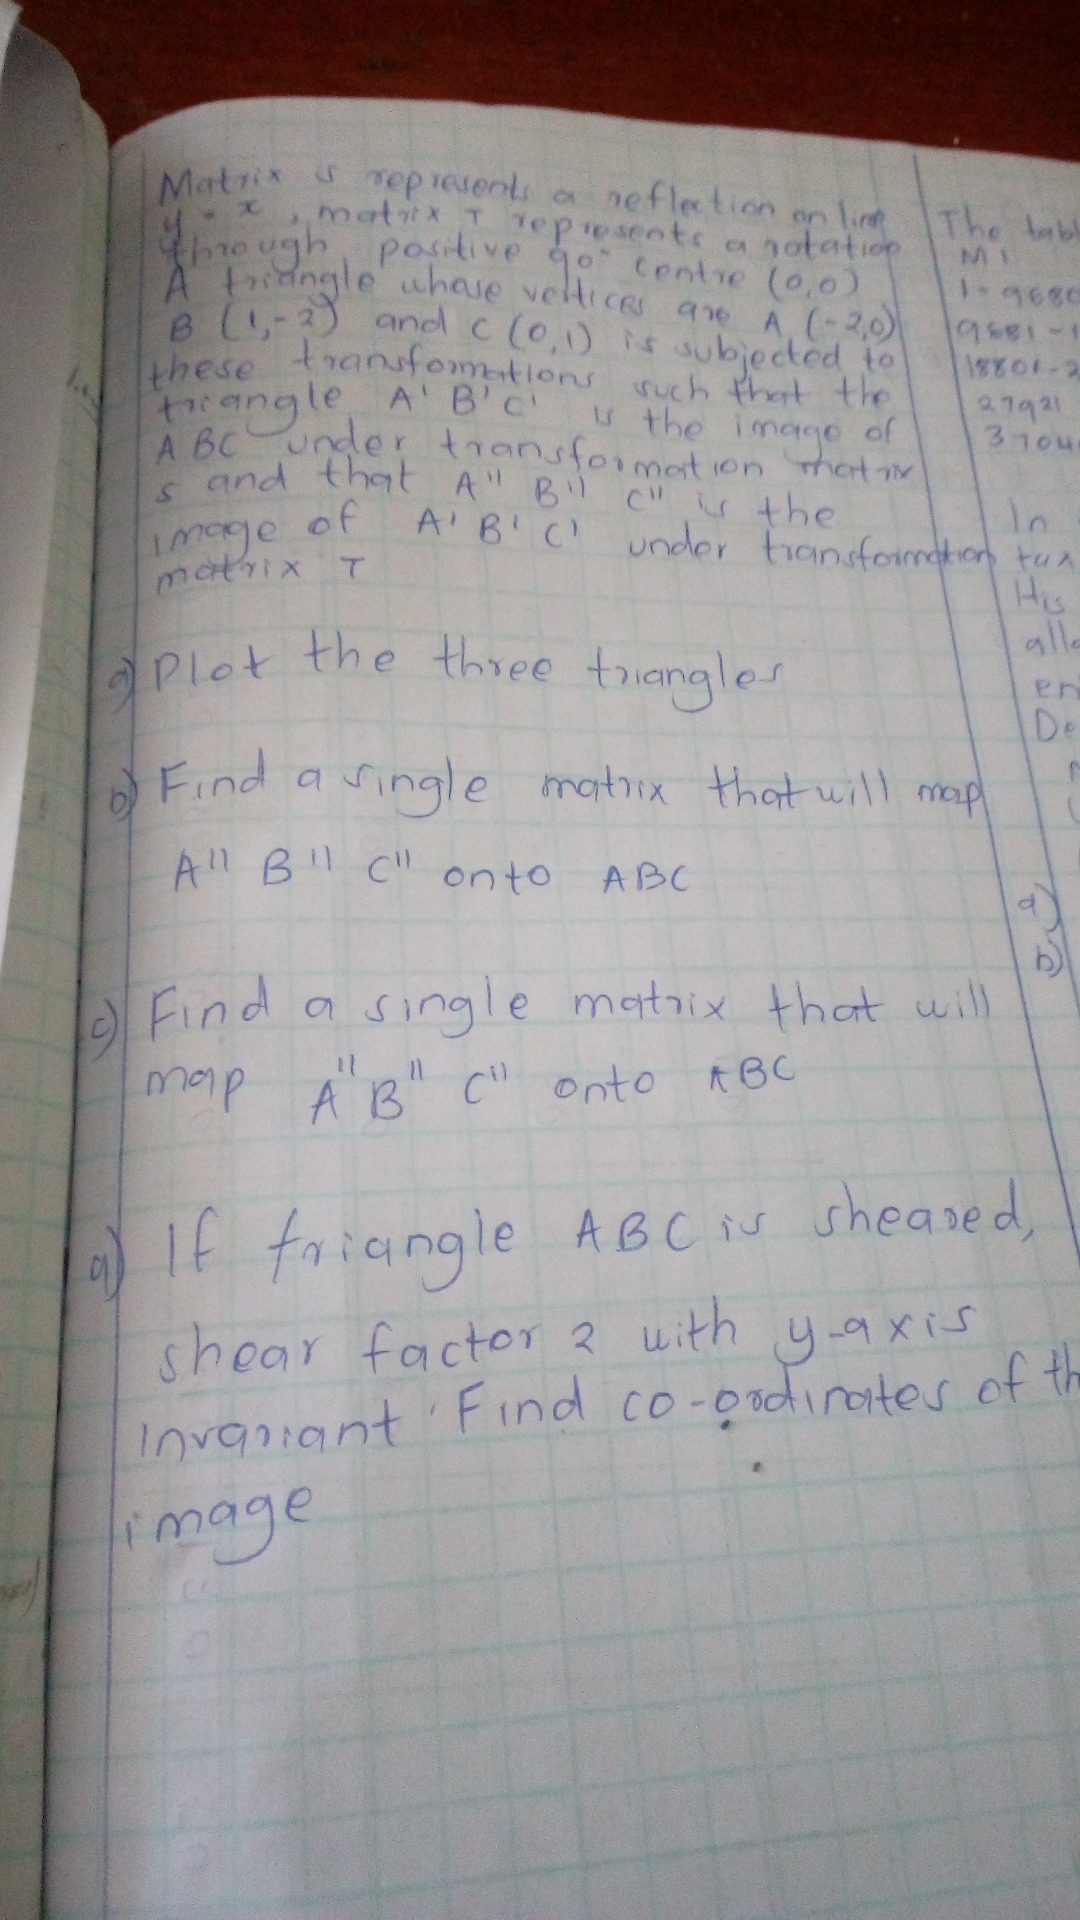 Matrix s represents a reflection on line
y = x, matrix T represents a rotation
through positive 90° centre (0,0)
A triangle whose vertices are A (-2,0)
B (1,-2) and C (0,1) is subjected to
these transformations such that the
triangle A' B' C' is the image of
ABC under transformation matrix
s and that A'' B'' C'' is the
image of A' B' C' under transformation
matrix T
a) Plot the three triangles
b) Find a single matrix that will map
A'' B'' C'' onto ABC
c) Find a single matrix that will
map A'' B'' C'' onto ABC
a) If triangle ABC is sheared,
shear factor 2 with y-axis
invariant. Find co-ordinates of th
image
The tabl
M
1-968
9681-1
18801-2
27921
In
tax
His
all
en
De
a)
b)